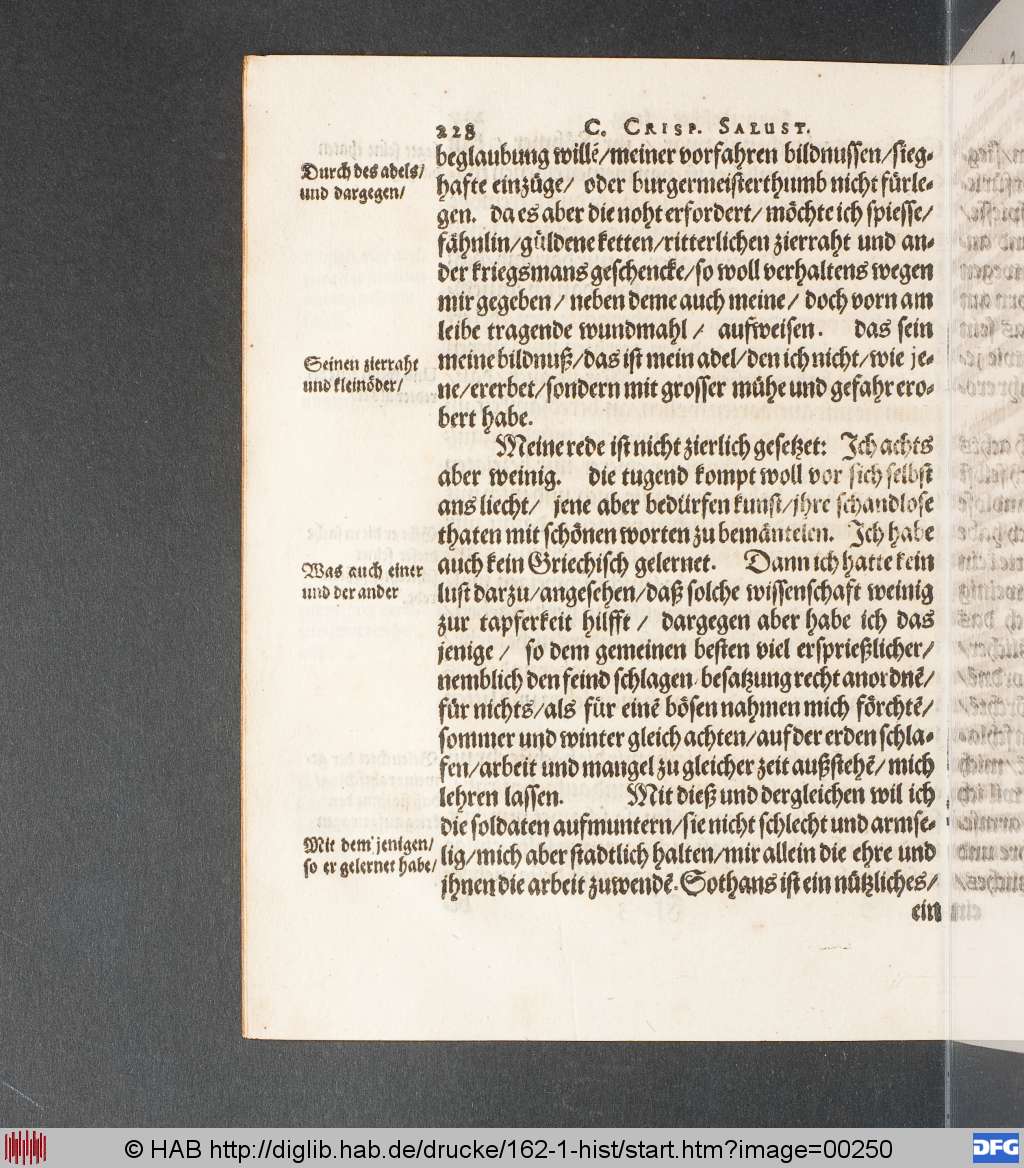 228 C. CRISP. SALUST.
beglaubung willē/meiner vorfahren bildnussen/sieg-
Durch des adels/
und dargegen/
hafte einzüge/ oder burgermeisterthumb nicht fürle-
gen. da es aber die noht erfordert/ möchte ich spiesse/
fähnlin/güldene ketten/ritterlichen zierraht und an-
der kriegsmans geschencke/so woll verhaltens wegen
mir gegeben/ neben deme auch meine/ doch vorn am
leibe tragende wundmahl/ aufweisen. das sein
Seinen zierraht
und kleinöder/
meine bildnuß/das ist mein adel/den ich nicht/wie je-
ne/ererbet/sondern mit grosser mühe und gefahr ero-
bert habe.
Meine rede ist nicht zierlich gesetzet: Ich achts
aber weinig. die tugend kompt woll vor sich selbst
ans liecht/ jene aber bedürfen kunst/jhre schandlose
thaten mit schönen worten zu bemänteien. Ich habe
Was auch einer
und der ander
auch kein Griechisch gelernet. Dann ich hatte kein
lust darzu/angesehen/daß solche wissenschaft weinig
zur tapferkeit hilfft/ dargegen aber habe ich das
jenige/ so dem gemeinen besten viel ersprießlicher/
nemblich den feind schlagen besatzung recht anordnē/
für nichts/als für einē bösen nahmen mich förchtē/
sommer und winter gleich achten/auf der erden schla-
fen/arbeit und mangel zu gleicher zeit außstehē/mich
lehren lassen. Mit dieß und dergleichen wil ich
die soldaten aufmuntern/sie nicht schlecht und armse-
Mit dem jenigen/
so er gelernet habe/
lig/mich aber stadtlich halten/mir allein die ehre und
jhnen die arbeit zuwendē. Sothans ist ein nützliches/
ein
© HAB http://diglib.hab.de/drucke/162-1-hist/start.htm?image=00250
DFG